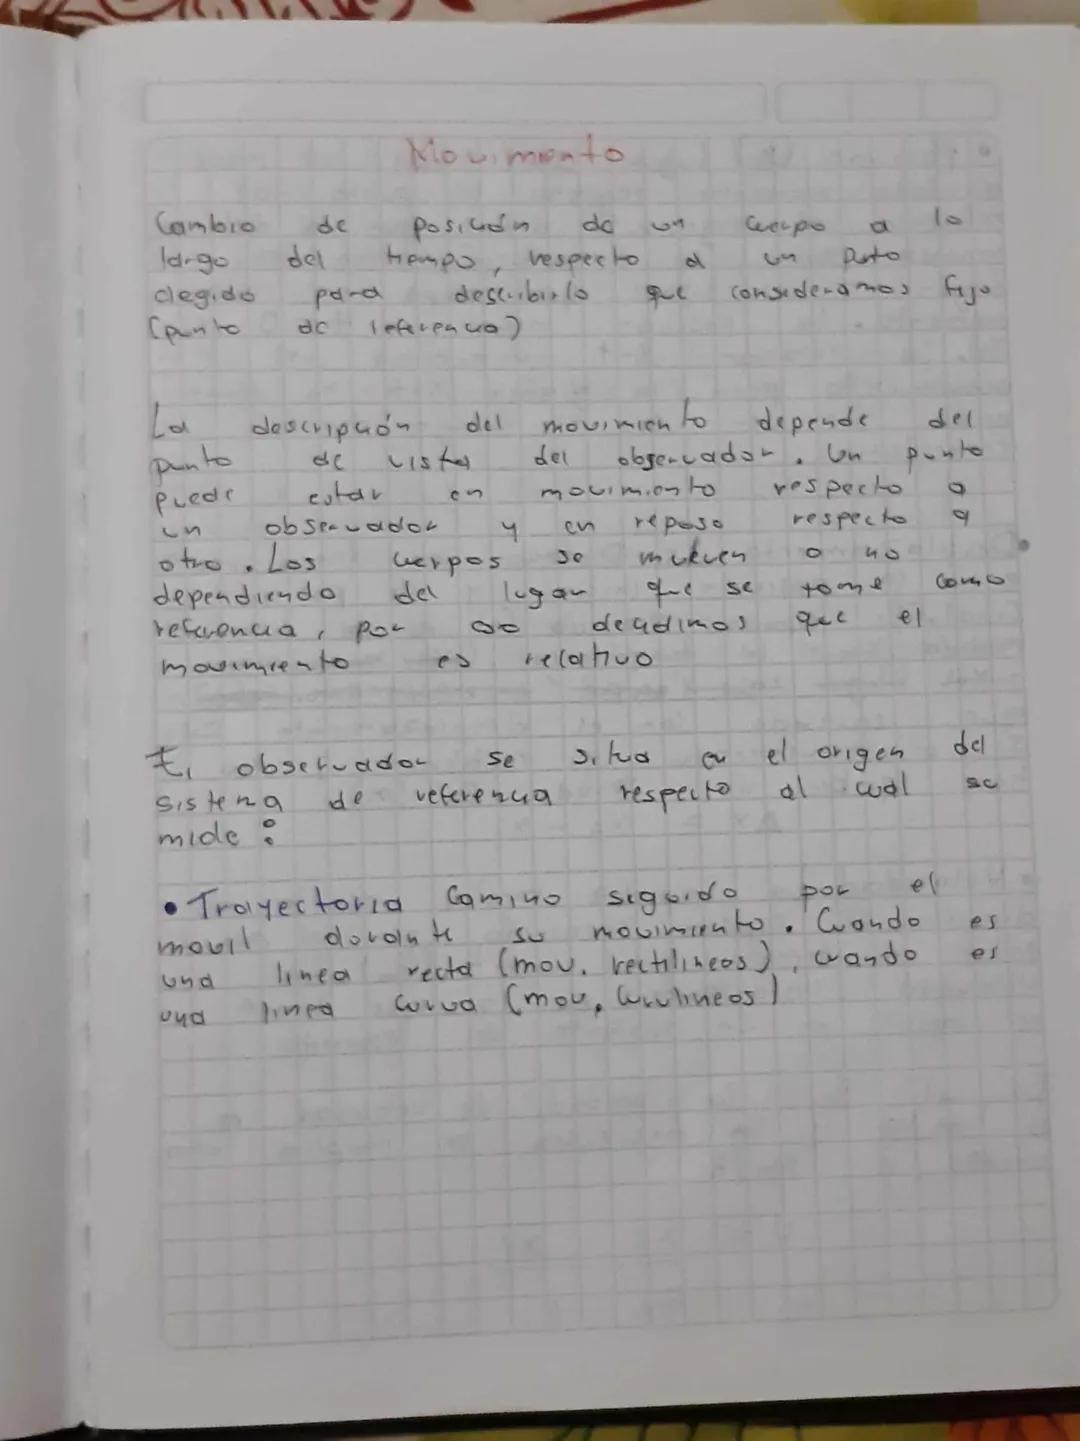 Movimiento
Cambio de posición de un cuerpo a lo
largo del tiempo, respecto a un punto
elegido para describirlo que consideramos fijo
(punto de referencia)
La descripción del movimiento depende del
punto de vista del observador. Un punto
puede estar en movimiento respecto a
un observador y en reposo respecto a
otro. Los cuerpos se mueven o no
dependiendo del lugar que se tome como
referencia, por que el
movimiento es relativo
El observador se situa en el origen del
sistema de referencia respecto al cual se
mide :
• Trayectoria Camino seguido por el
movil durante su movimiento. Cuando es
una linea recta (mov. rectilineos), cuando es
una linea curva (mov. curvilineos)